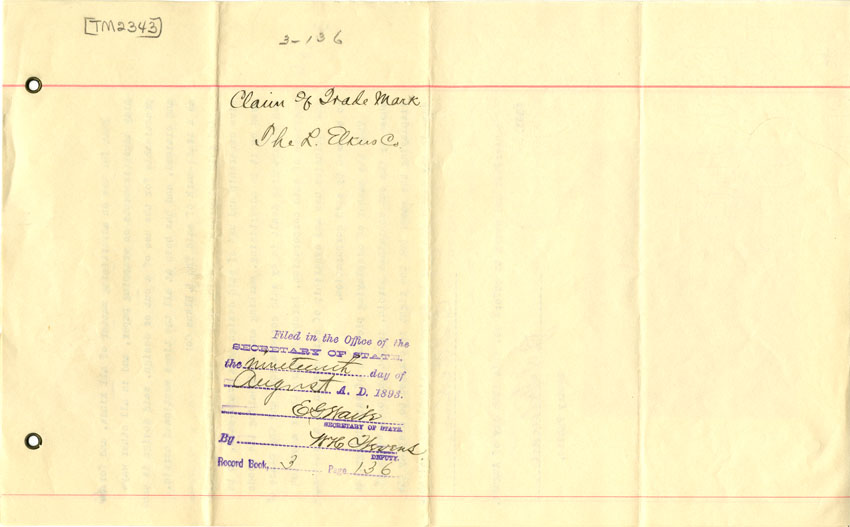 [TM2343]
3-136
Claim of Trade Mark
The L. Elkus Co.
Filed in the Office of the
SECRETARY OF STATE,
the nineteenth day of
August A. D. 1893.
E G Waite
SECRETARY OF STATE.
By W H
DEPUTY.
Record Book, 3 Page 136